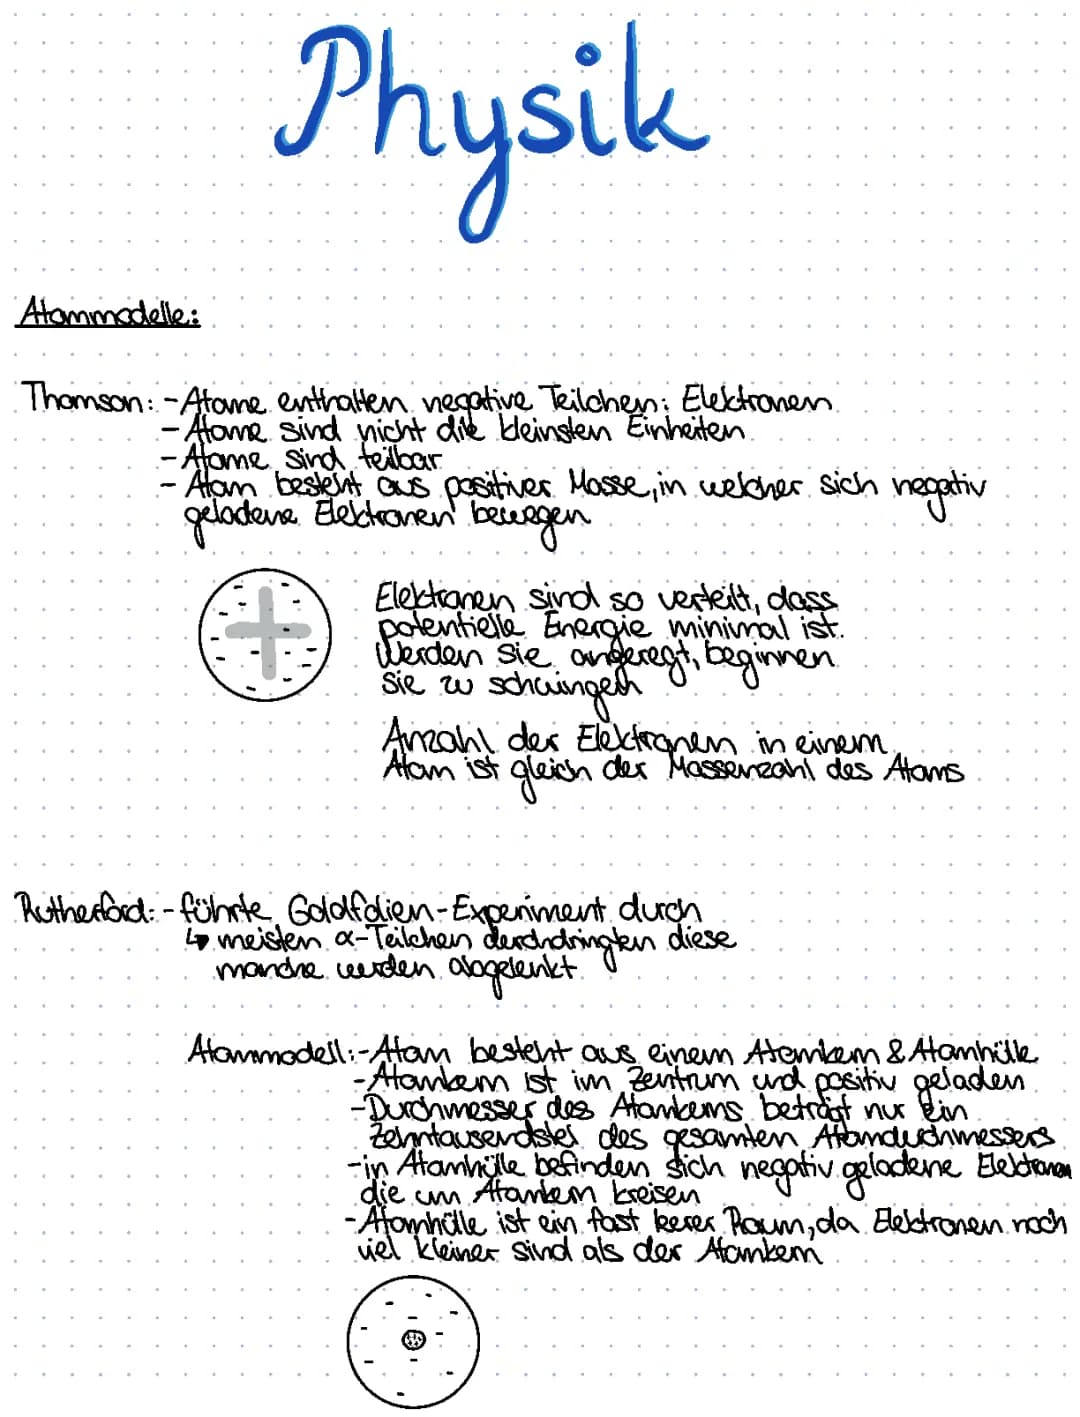 Physik
Atommodelle:
Thomson: - Atome enthalten negative Teilchen: Elektronen
- Atome sind nicht die kleinsten Einheiten
- Atome sind teilbar
- Atom besteht aus positiver Masse, in welcher sich negativ
geladene Elektronen bewegen
Elektronen sind so verteilt, dass
potentielle Energie minimal ist.
Werden sie angeregt, beginnen
sie zu schwingen
Anzahl der Elektronen in einem
Atom ist gleich der Massenzahl des Atoms
Rutherford: - führte Goldfolien-Experiment durch
↳ meisten α-Teilchen derchdringten diese
manche werden abgelenkt
Atommodell: - Atom besteht aus einem Atomkern & Atomhülle
- Atomkern ist im Zentrum und positiv geladen
- Durchmesser des Atomkerns beträgt nur ein
Zehntausendstel des gesamten Atomduchmessers
- in Atomhülle befinden sich negativ geladene Elektronen
die um Atomkern kreisen
- Atomhülle ist ein fast leerer Raum, da Elektronen noch
viel kleiner sind als der Atomkern